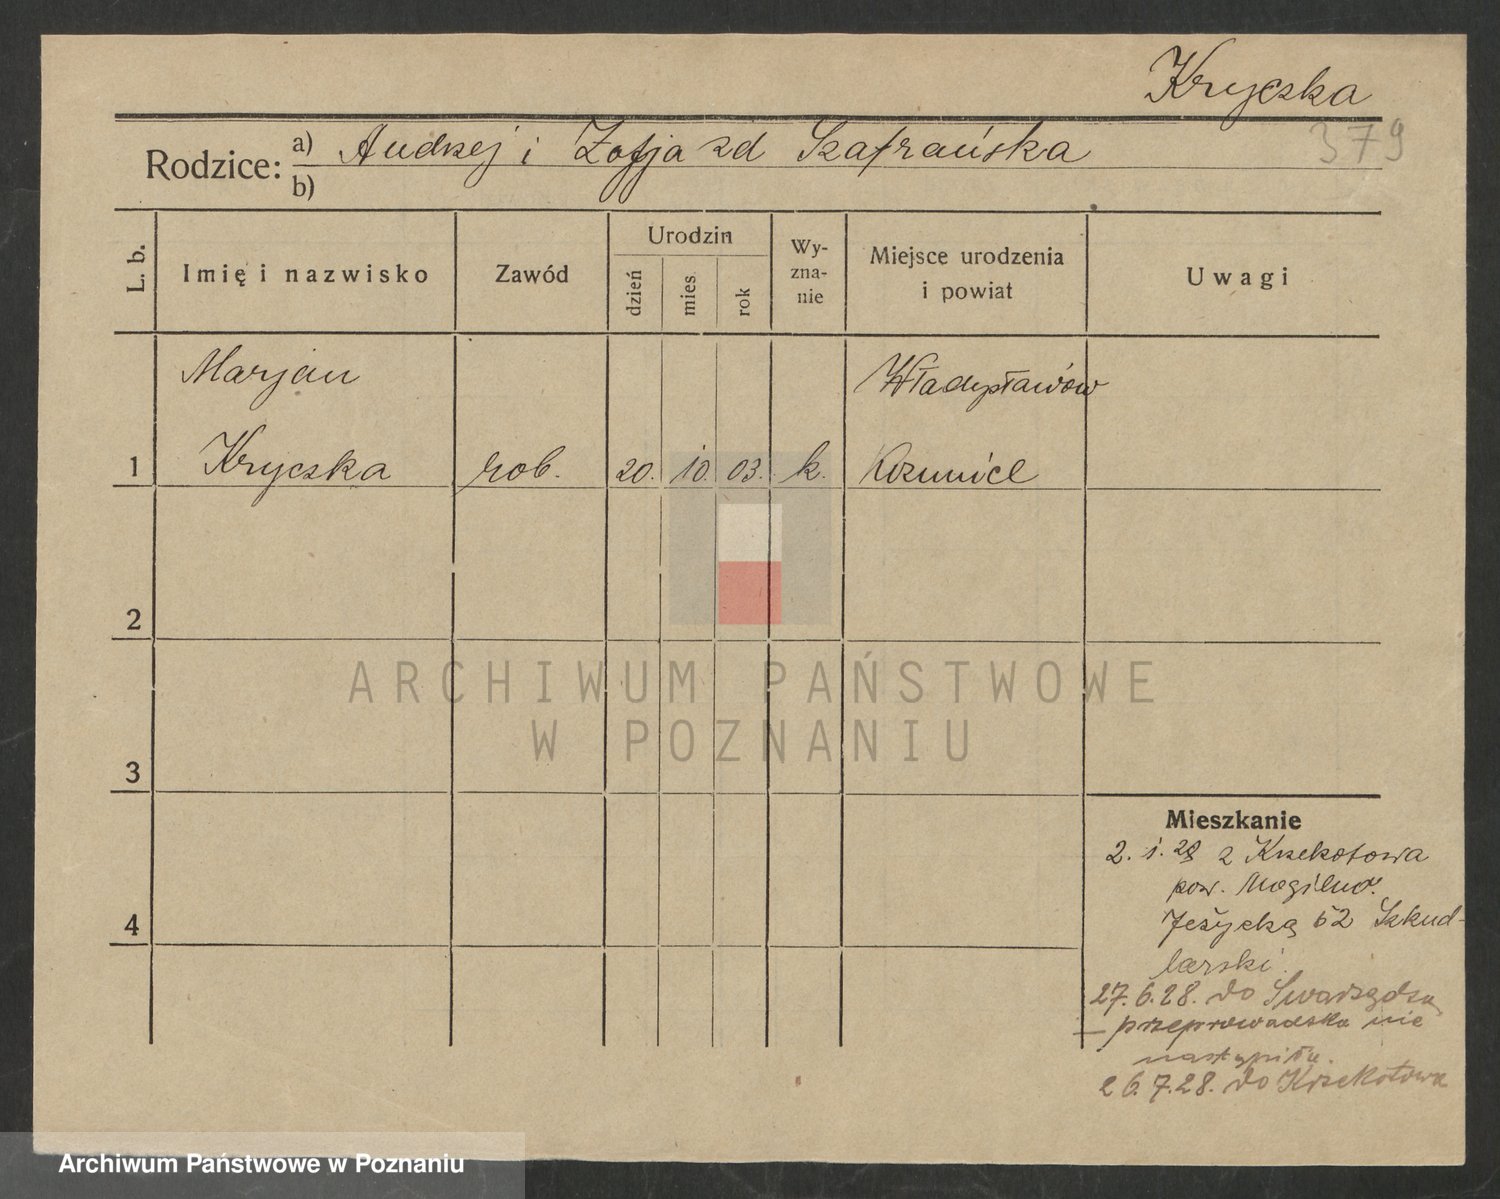 Kryczka
379
Rodzice: a) Andrzej i Zofja zd Szafrańska
b)
L. b. Imię i nazwisko Zawód Urodzin dzień mies rok Wy- zna- nie Miejsce urodzenia i powiat Uwagi
Marjan Władysławów
1 Kryczka rob. 20. 10. 03. k. Kozienice
2
ARCHIWUM PAŃSTWOWE
W POZNANIU
3
Mieszkanie
2. 1. 28 z Krzekotowa
pow. Mogilno.
4 Jeżycka 52 Szkud-
larski.
27.6.28. do Swarzędza
– przeprowadzka nie
nastąpiła.
26.7.28. do Krzekotowa
Archiwum Państwowe w Poznaniu